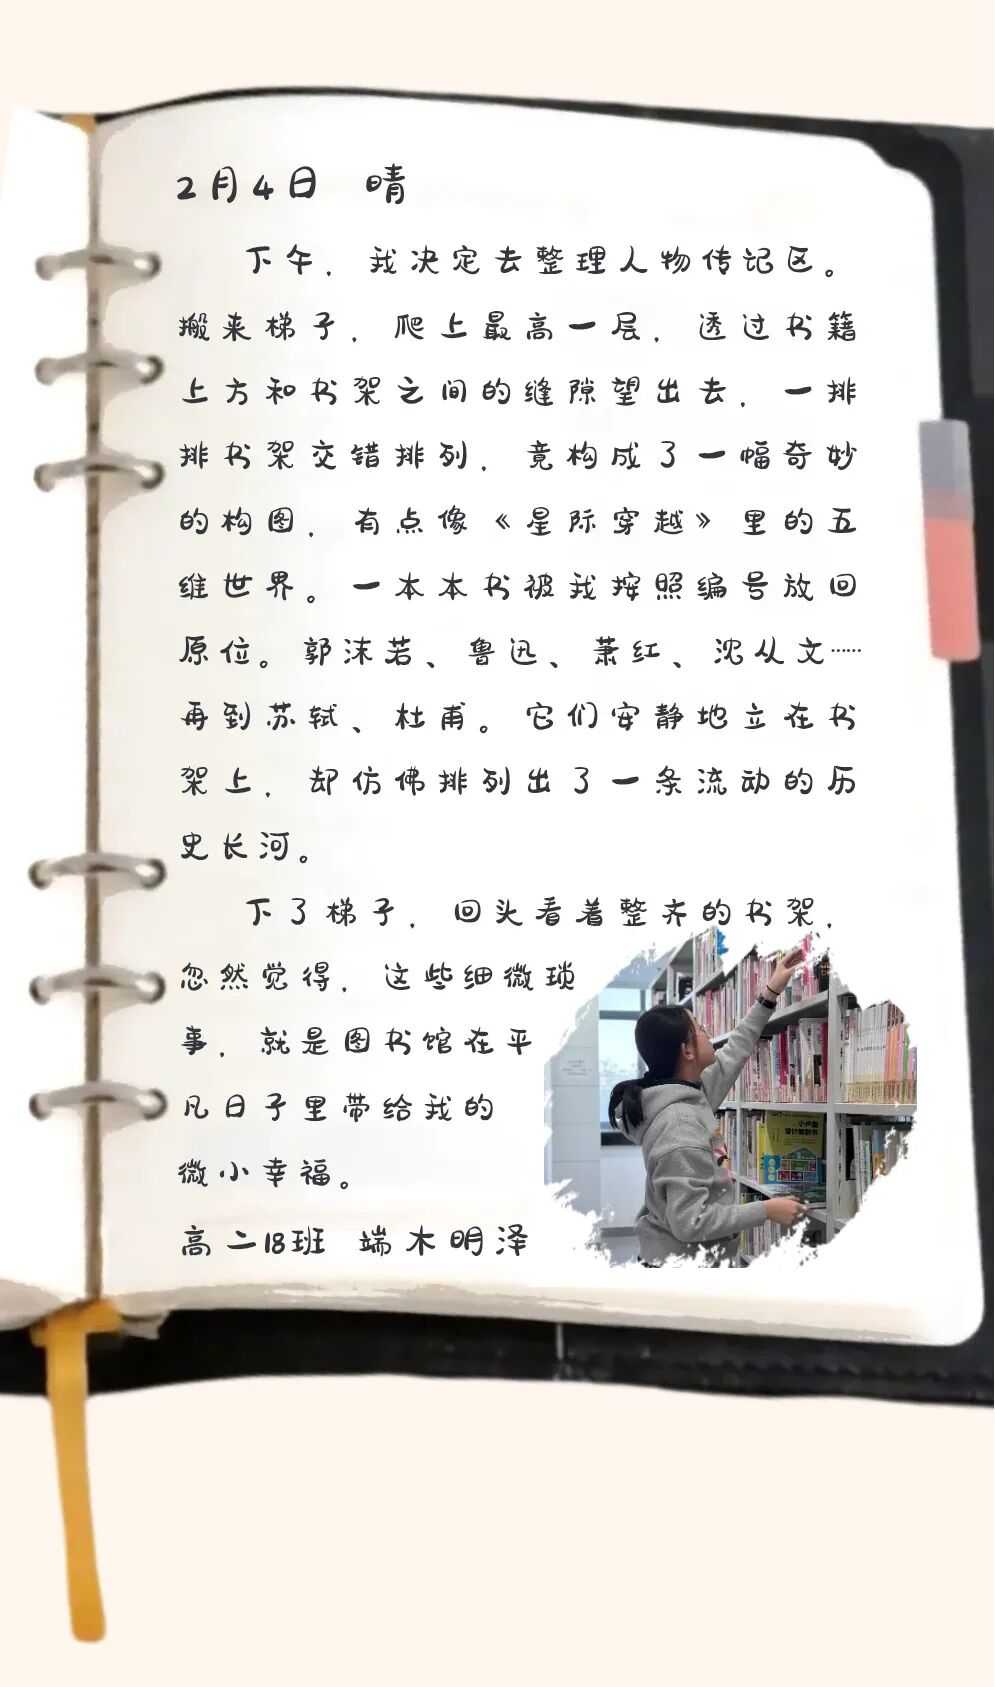 2月4日 晴
下午，我决定去整理人物传记区。
搬来梯子，爬上最高一层，透过书籍
上方和书架之间的缝隙望出去，一排
排书架交错排列，竟构成了一幅奇妙
的构图，有点像《星际穿越》里的五
维世界。一本本书被我按照编号放回
原位。郭沫若、鲁迅、萧红、沈从文……
再到苏轼、杜甫。它们安静地立在书
架上，却仿佛排列出了一条流动的历
史长河。
下了梯子，回头看着整齐的书架，
忽然觉得，这些细微琐
事，就是图书馆在平
凡日子里带给我的
微小幸福。
高二18班 端木明泽
小户型
设计解剖书